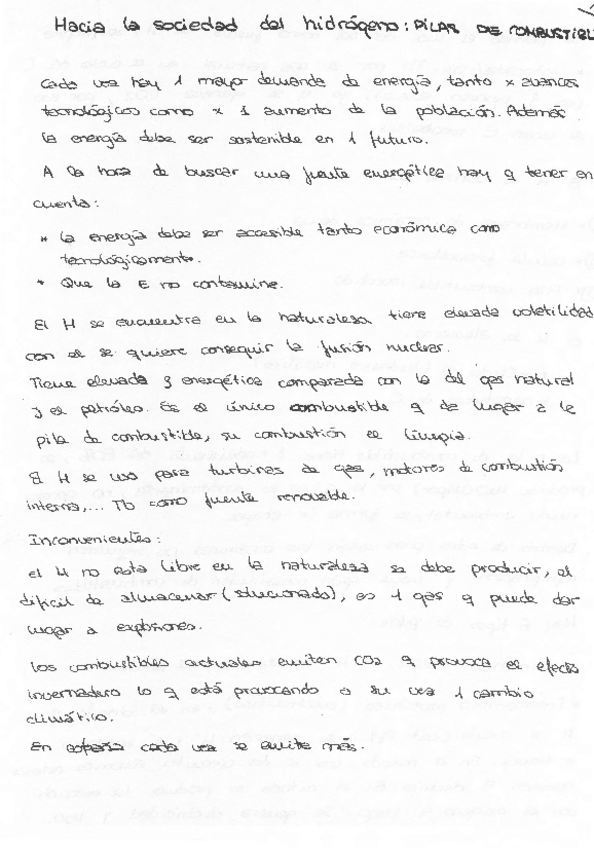 Hacia la sociedad del hidrógeno: PILAR DE COMBUSTIBL
Cada vez hay 1 mayor demanda de energía, tanto x avances
tecnológicos como x 1 aumento de la población. Además
la energía debe ser sostenible en 1 futuro.
A la hora de buscar una fuente energética hay q tener en
cuenta:
* La energía debe ser accesible tanto económica como
tecnológicamente.
* Que la E no contamine.
El H se encuentra en la naturaleza tiene elevada volatilidad
con el se quiere conseguir la fusión nuclear.
Tiene elevada energética comparada con la del gas natural
y el petróleo. Es el único combustible q da lugar a la
pila de combustible, su combustión es limpia.
El H se usa para turbinas de gas, motores de combustión
interna,... Tb como fuente renovable.
Inconvenientes:
el H no está libre en la naturaleza se debe producir, el
difícil de almacenar (solucionado), es 1 gas q puede dar
lugar a explosiones.
los combustibles actuales emiten CO2 q provoca el efecto
invernadero lo q está provocando a su vez 1 cambio
climático.
En españa cada vez se emite más.